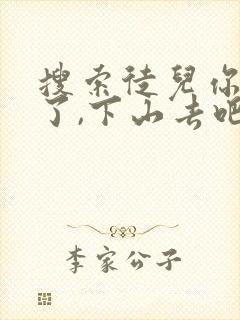 搜索徒兒你
了,下山去吧
李家公子